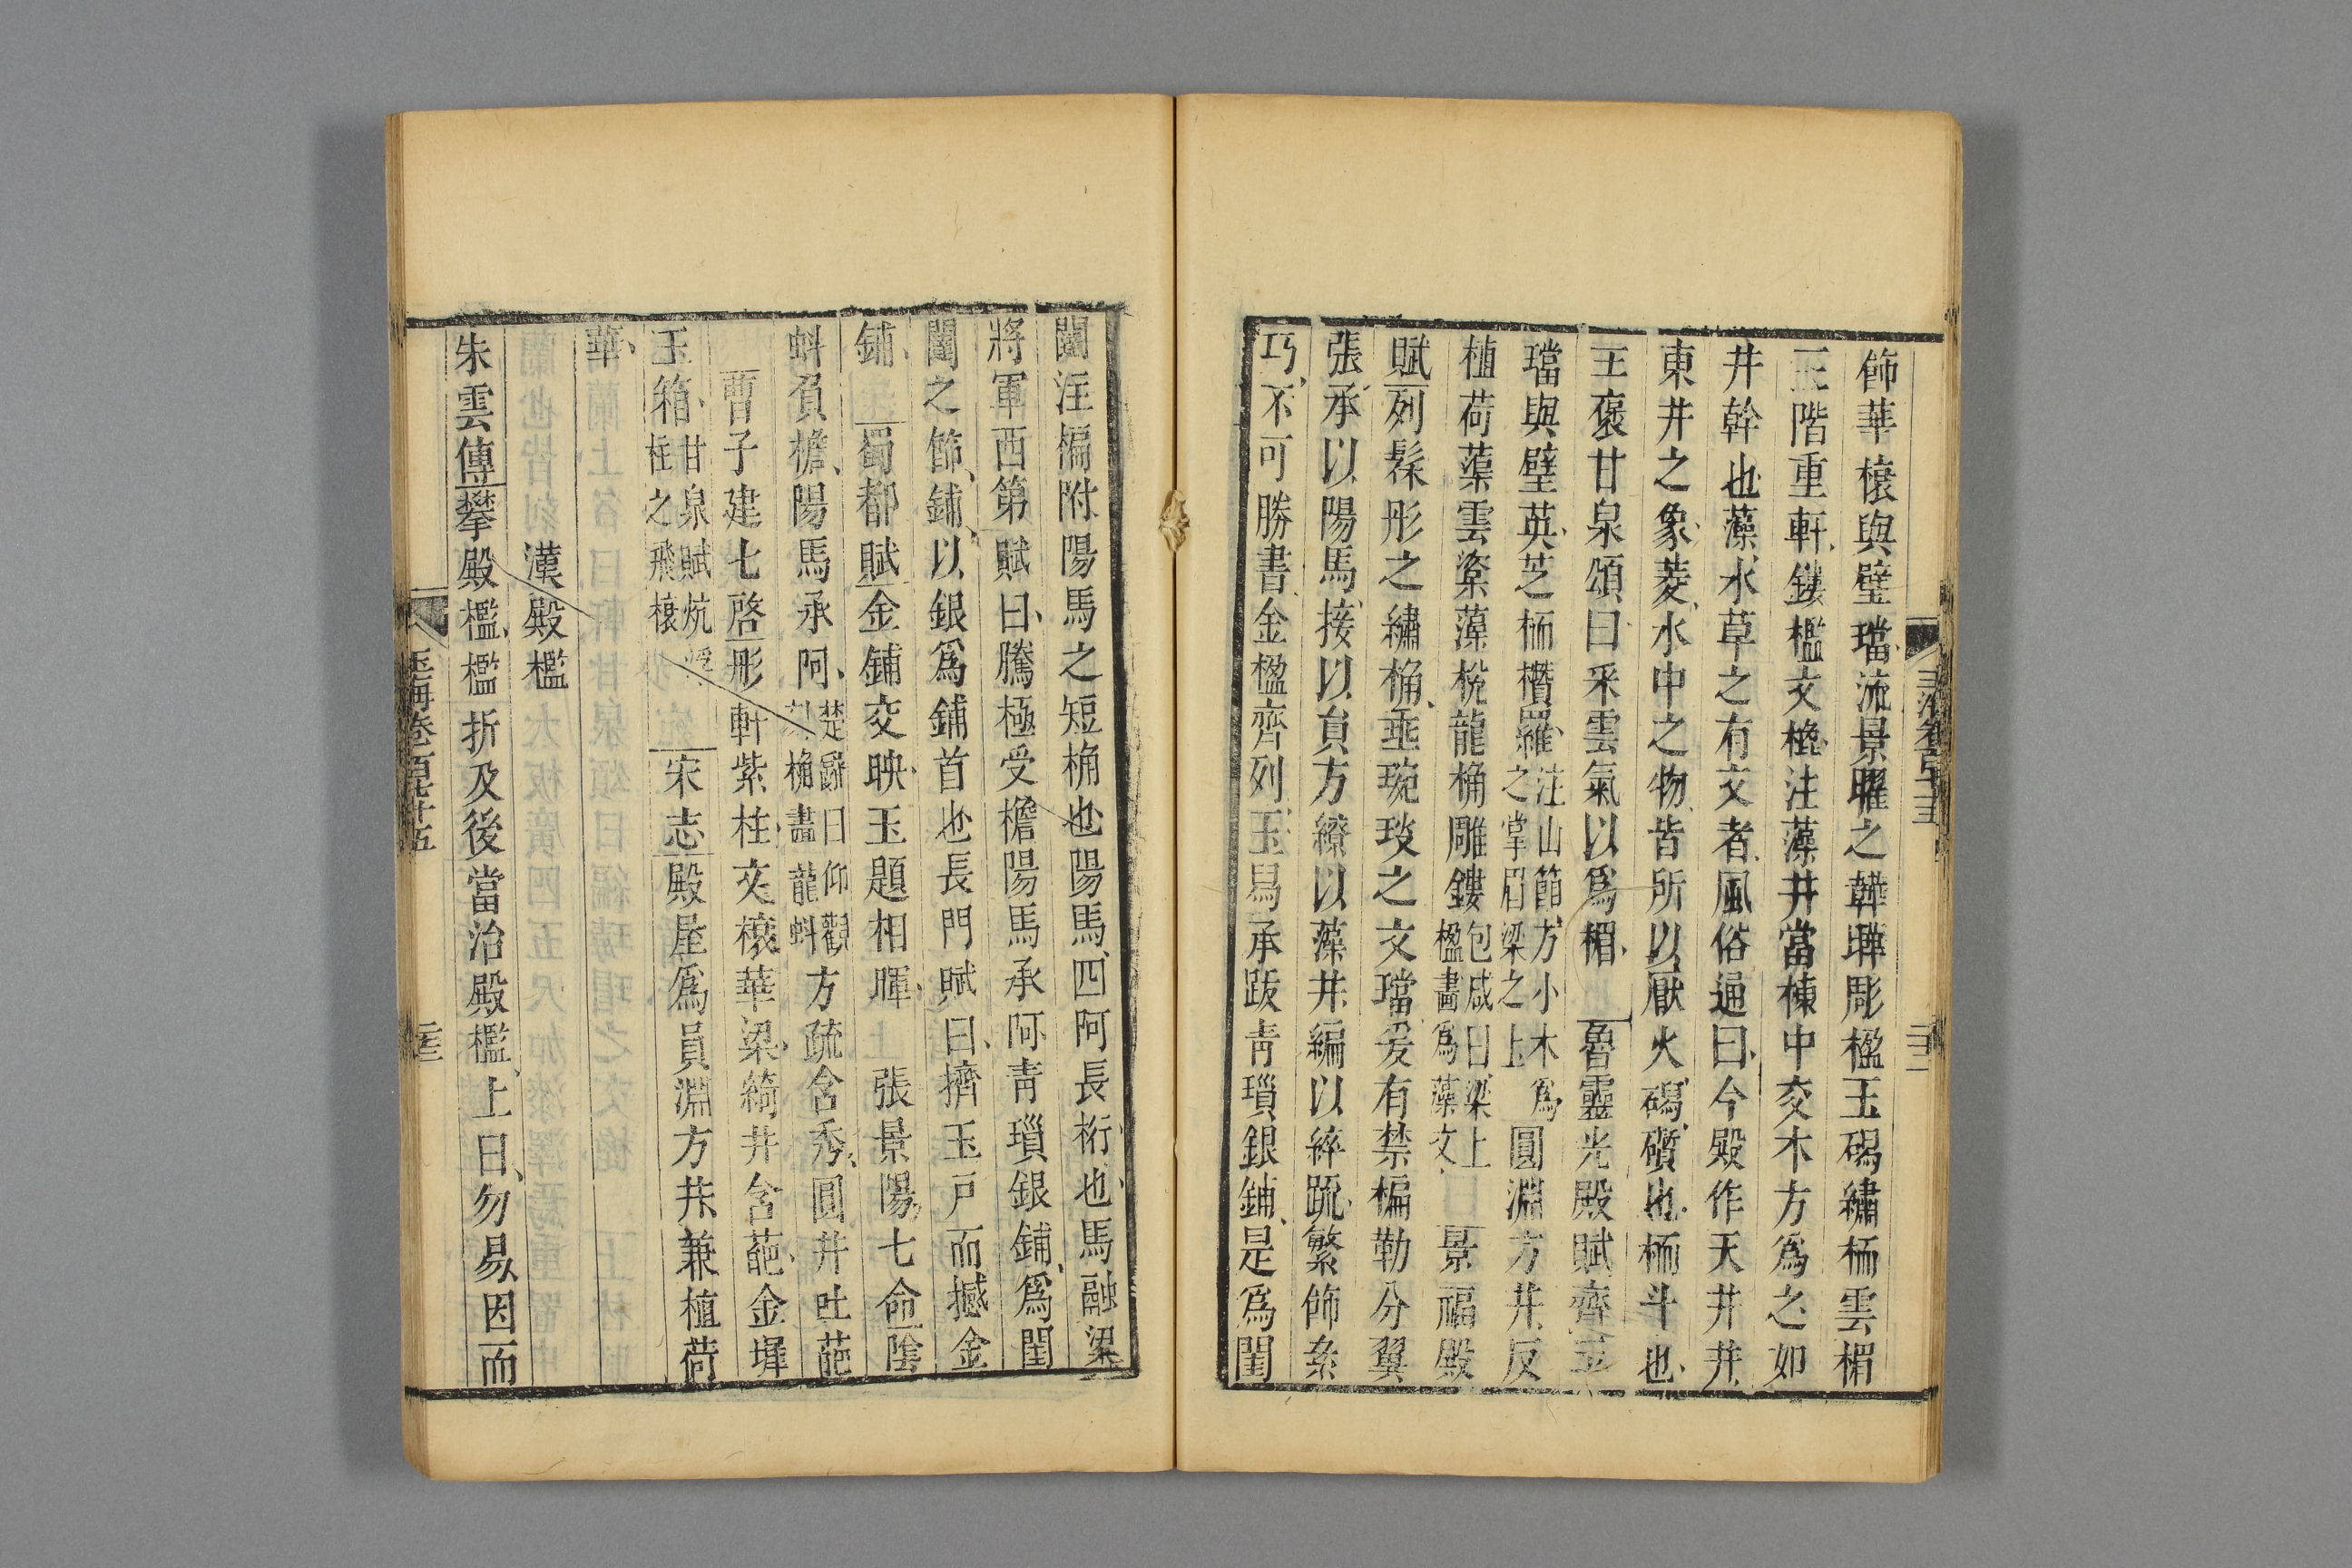 飾華榱與璧璫流景曜之韡曄彫楹玉磶繡栭雲楣
三階重軒鏤檻文㮰注藻井當棟中交木方爲之如
井幹也藻水草之有文者風俗通曰今殿作天井井
東井之象菱水中之物皆所以厭火磶礩也栭斗也
王褒甘泉頌曰采雲氣以爲楣　魯靈光殿賦齊玉
璫與璧英芝栭欑羅注山節方小木爲之掌眉梁之上圓淵方井反
植荷蕖雲楶藻梲龍桷雕鏤包咸曰梁上楹畫爲藻文　景福殿
賦列髹彤之繡桷垂琬琰之文璫爰有禁楄勒分翼
張承以陽馬接以負方繚以藻井編以綷疏繁飾衆
巧不可勝書金楹齊列玉舄承跋青瑣銀鋪是爲閨
闥注楄附陽馬之短桷也陽馬四阿長桁也馬融梁
將軍西第賦曰騰極受檐陽馬承阿青瑣銀鋪爲閨
闥之飾鋪以銀爲鋪首也長門賦曰擠玉戸而撼金
鋪　蜀都賦金鋪交映玉題相暉　張景陽七命陰
蚪負檐陽馬承阿楚辭曰仰觀刻桷畫龍蚪方疏含秀圓井吐葩
曹子建七啓彤軒紫柱文榱華梁綺井含葩金墀
玉箱甘泉賦炕浮柱之飛榱　宋志殿屋爲員淵方井兼植荷
華
漢殿檻
朱雲傳攀殿檻檻折及後當治殿檻上曰勿易因而
玉海卷百七十五